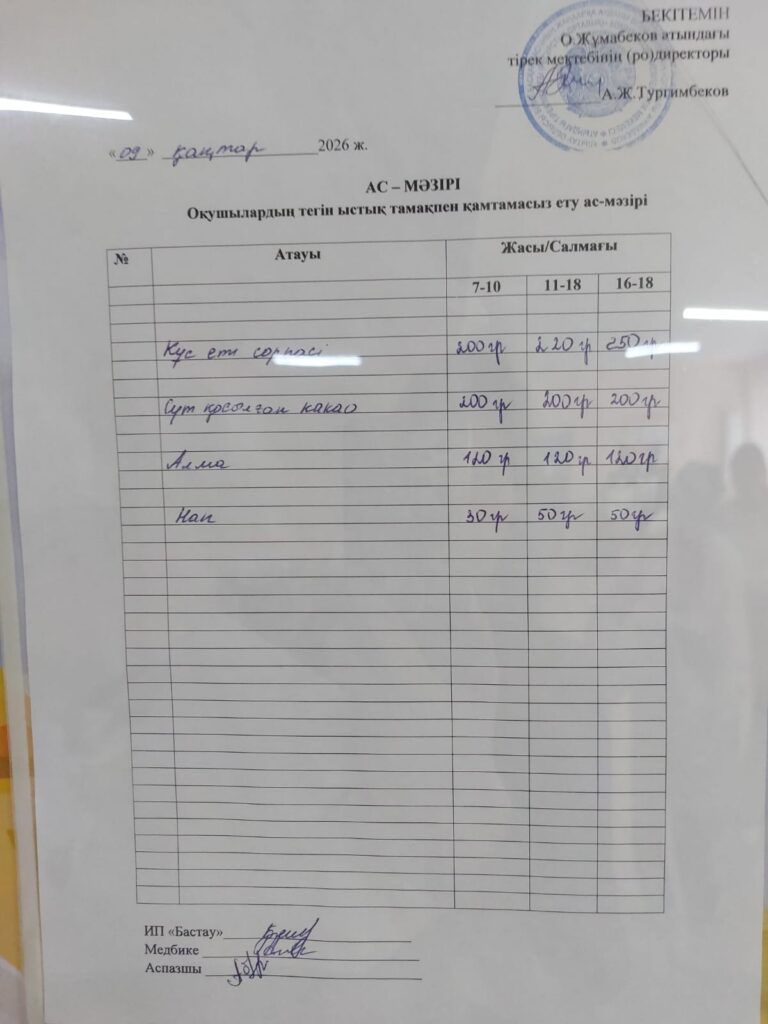 БЕКІТЕМІН
О.Жұмабеков атындағы
тірек мектебінің (ро)директоры
А.Ж.Тургимбеков
«09» қаңтар 2026 ж.
АС – МӘЗІРІ
Оқушылардың тегін ыстық тамақпен қамтамасыз ету ас-мәзірі
№ Атауы Жасы/Салмағы
7-10 11-18 16-18
Құс еті сорпасі 200 гр 220 гр 250 гр
Сүт қосылған какао 200 гр 200 гр 200 гр
Алма 120 гр 120 гр 120 гр
Нан 30 гр 50 гр 50 гр
ИП «Бастау»
Медбике
Аспазшы